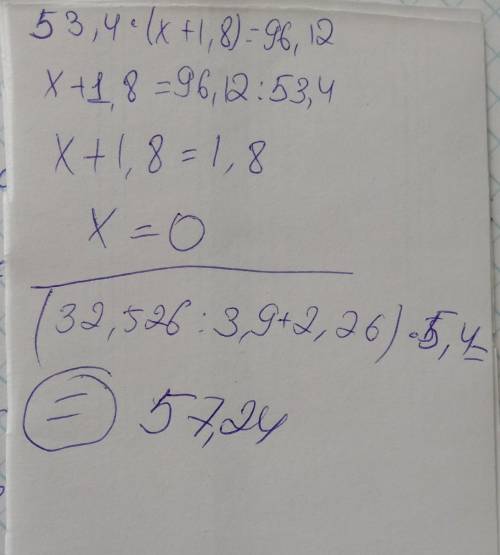 53,4·(x+1,8)=96,12
x+1,8=96,12:53,4
x+1,8=1,8
x=0
(32,526:3,9+2,26)·5,4=
= 57,24